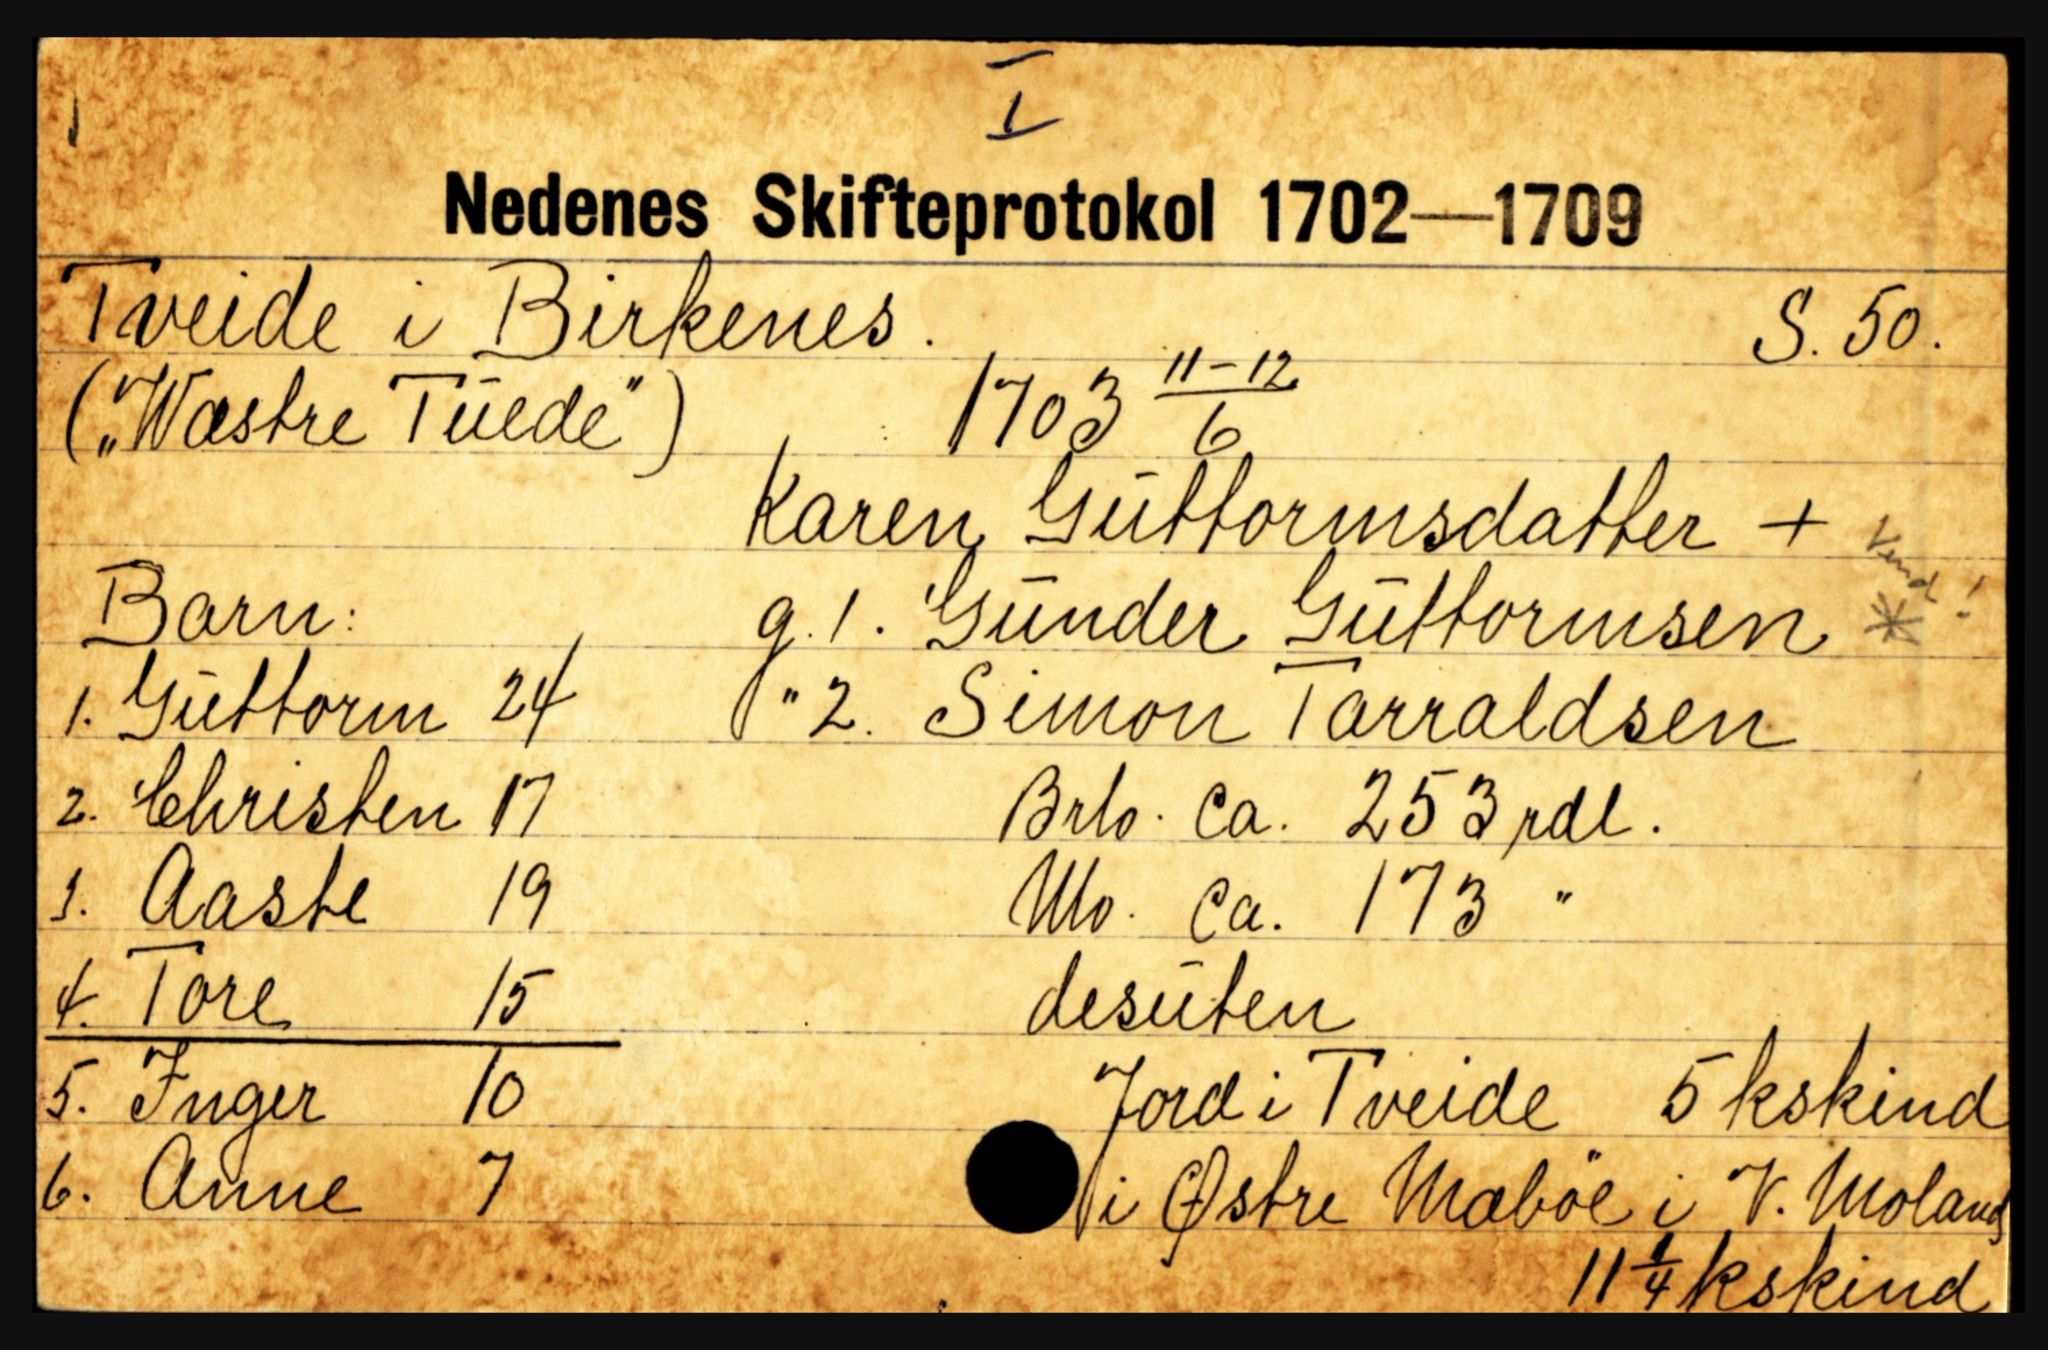 I
Nedenes Skifteprotokol 1702—1709
Tveide i Birkenes. S. 50.
(„Wæstre Tūede") 1703 11-12/6
Karen Gūttormsdatter +
Vend!
Barn: g. 1. Gūnder Gūttormsen *
1. Gūttorm 24 " 2. Simon Tarraldsen
2. Christen 17 Brto. Ca. 253 rdl.
3. Aaste 19 Nto. Ca. 173 "
4. Tore 15 desūten
5. Inger 10 Jord i Tveide 5 kskind
6. Anne 7 i Østre Mæböe i V. Moland
11 1/4 kskind